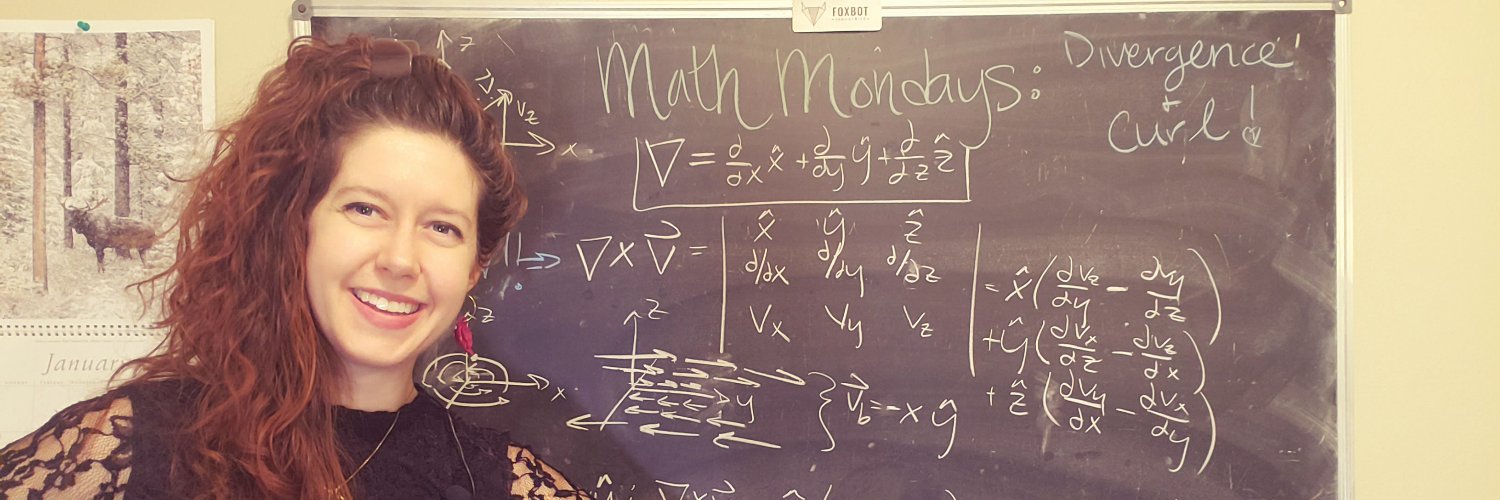 FOXBOT
Math Mondays:
Divergence
+
Curl!
z
v_z
x
∇ = ∂/∂x x̂ + ∂/∂y ŷ + ∂/∂z ẑ
∇ x V⃗ =
x̂ ŷ ẑ
∂/∂x ∂/∂y ∂/∂z
Vx Vy Vz
= x̂ (∂vz/∂y - ∂vy/∂z)
+ ŷ (∂vx/∂z - ∂vz/∂x)
+ ẑ (∂vy/∂x - ∂vx/∂y)
z
x
z
y
v⃗_b = -x ŷ
January